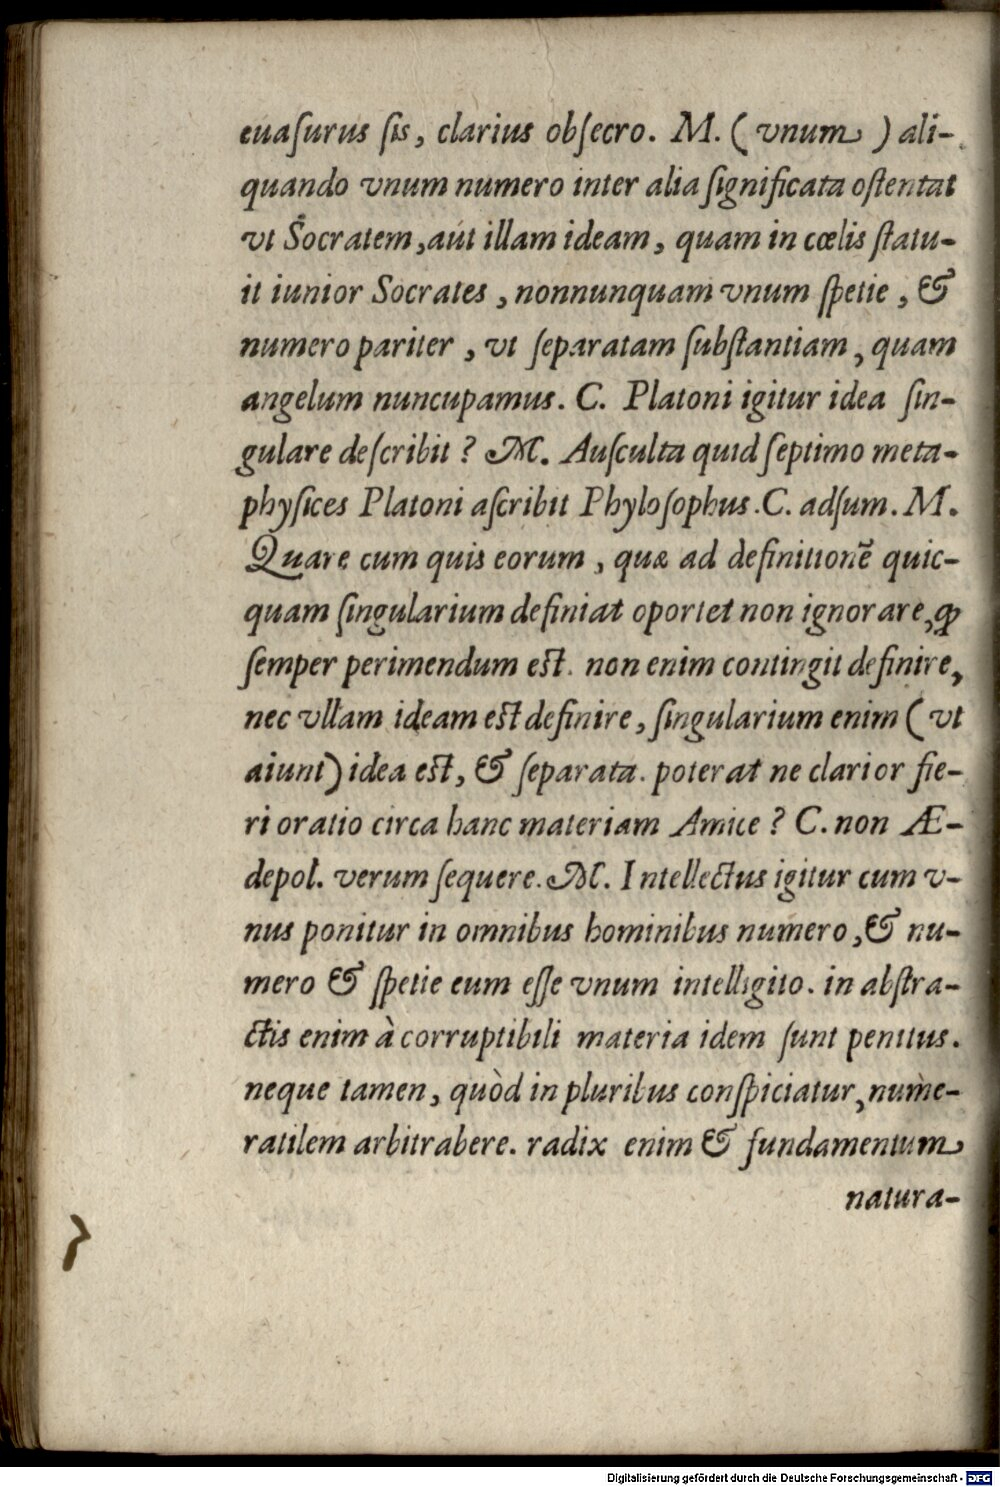 euaſurus ſis, clarius obſecro. M. ( vnum ) ali-
quando vnum numero inter alia ſignificata oſtentat
vt Socratem, aut illam ideam, quam in cœlis ſtatu-
it iunior Socrates, nonnunquam vnum ſpetie, &
numero pariter, vt ſeparatam ſubſtantiam, quam
angelum nuncupamus. C. Platoni igitur idea ſin-
gulare deſcribit? M. Auſculta quid ſeptimo meta-
phyſices Platoni aſcribit Phyloſophus. C. adſum. M.
Quare cum quis eorum, quæ ad definitionē quic-
quam ſingularium definiat oportet non ignorare, ꝙ
ſemper perimendum est. non enim contingit definire,
nec vllam ideam est definire, ſingularium enim ( vt
aiunt) idea est, & ſeparata. poterat ne clarior fie-
ri oratio circa hanc materiam Amice? C. non Æ-
depol. verum ſequere. M. Intellectus igitur cum v-
nus ponitur in omnibus hominibus numero, & nu-
mero & ſpetie eum eſſe vnum intelligito. in abſtra-
ctis enim à corruptibili materia idem ſunt penitus.
neque tamen, quòd in pluribus conſpiciatur, nume-
rabilem arbitrabere. radix enim & fundamentum
natura-
Digitalisierung gefördert durch die Deutsche Forschungsgemeinschaft - DFG